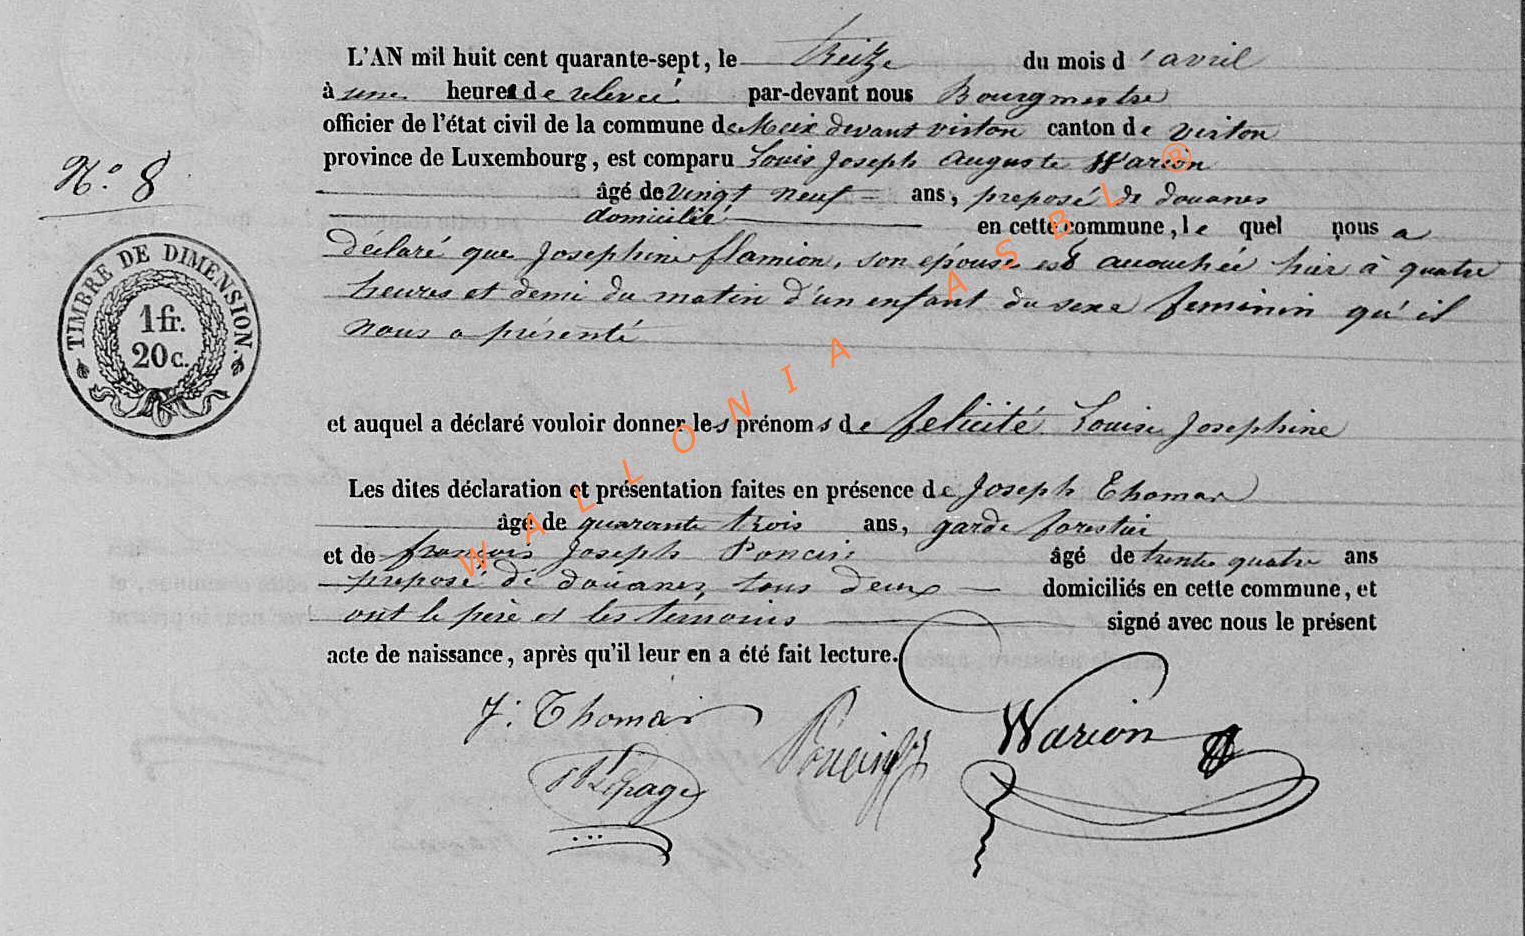 L'AN mil huit cent quarante-sept, le treize du mois d'avril
à une heure de relevée par-devant nous Bourgmestre
officier de l'état civil de la commune de Meix devant virton canton de virton
N.º 8
province de Luxembourg, est comparu Louis Joseph auguste Warion
âgé de vingt neuf ans, preposé de douanes
domicilié en cette commune, lequel nous a
déclaré que Josephine flamion, son epouse est accouchée hier à quatre
heures et demi du matin d'un enfant du sexe feminin qu'il
nous a présenté
TIMBRE DE DIMENSION.
1 fr.
20 c.
et auquel a déclaré vouloir donner les prénoms de felicité Louise Josephine
Les dites déclaration et présentation faites en présence de Joseph Thomas
âgé de quarante trois ans, garde forestier
et de françois Joseph Poncin âgé de trente quatre ans
preposé de douanes, tous deux domiciliés en cette commune, et
ont le père et les temoins signé avec nous le présent
acte de naissance, après qu'il leur en a été fait lecture.
J: Thomas
Poncin
Warion
Lepage
WALLONIA ASBL ®